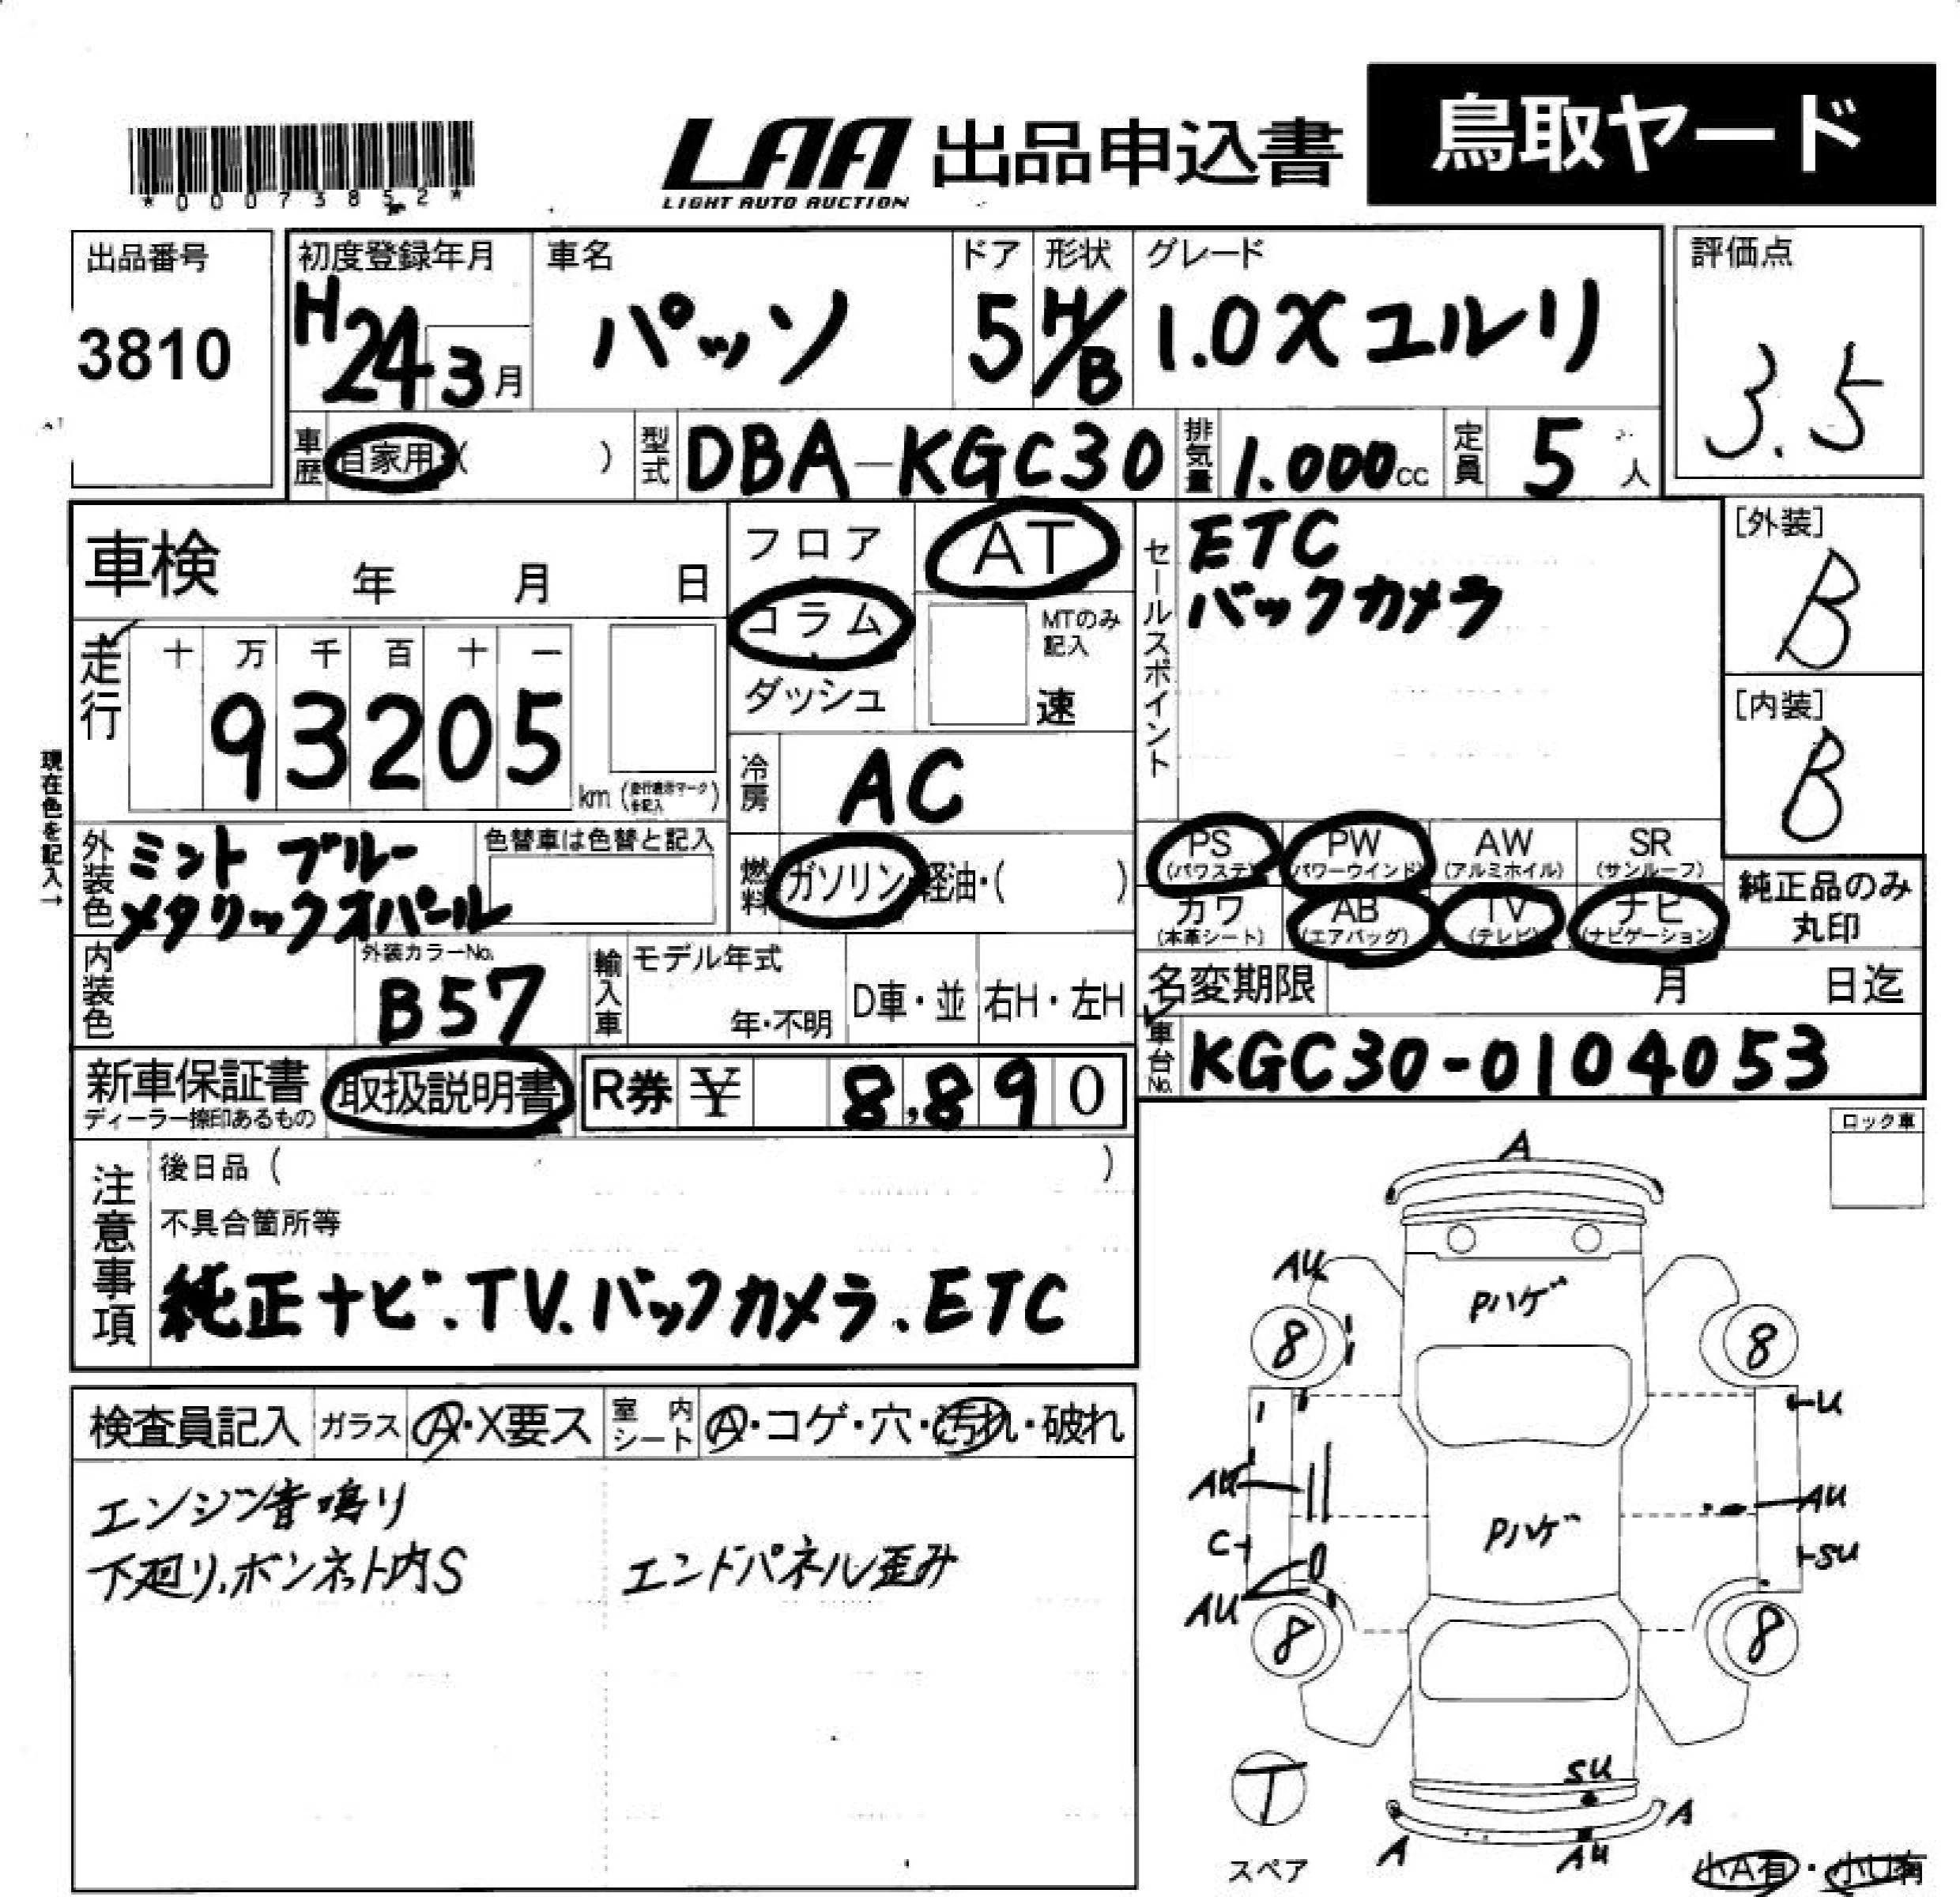 *00073852*
LAA 出品申込書
LIGHT AUTO AUCTION
鳥取ヤード
出品番号
3810
初度登録年月
H24 3月
車名
パッソ
ドア
5
形状
H/B
グレード
1.0X ユルリ
評価点
3.5
車歴
自家用 ( )
型式
DBA-KGC30
排気量
1.000cc
定員
5人
車検 年 月 日
フロア
コラム
ダッシュ
AT
MTのみ記入
速
セールスポイント
ETC
バックカメラ
[外装]
B
[内装]
B
走行
十 万 千 百 十 一
93205
km
冷房
AC
現在色を記入→
外装色
ミントブルー
メタリックオパール
色替車は色替と記入
燃料
ガソリン・軽油・( )
PS (パワステ)
PW (パワーウインド)
AW (アルミホイル)
SR (サンルーフ)
カワ (本革シート)
AB (エアバッグ)
TV (テレビ)
ナビ (ナビゲーション)
純正品のみ
丸印
内装色
外装カラーNo.
B57
輸入車
モデル年式
年・不明
D車・並
右H・左H
名変期限 月 日迄
車台No.
KGC30-0104053
新車保証書
ディーラー捺印あるもの
取扱説明書
R券 ¥ 8,890
注意事項
後日品 ( )
不具合箇所等
純正ナビ.TV.バックカメラ.ETC
ロック車
検査員記入
ガラス
A・X要ス
室内シート
A・コゲ・穴・汚れ・破れ
エンジン音鳴り
下廻り.ボンネット内S
エンドパネル歪み
A
AU
Pハゲ
8
8
U
AU
AU
C
Pハゲ
SU
AU
8
8
T
スペア
SU
A
A
AU
小A有・小U有